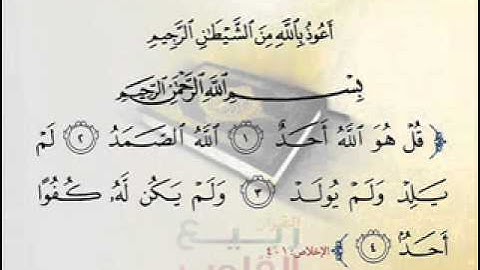 أَعُوذُ بِاللَّهِ مِنَ الشَّيْطَٰنِ الرَّجِيمِ
بِسْمِ اللَّهِ الرَّحْمَٰنِ الرَّحِيمِ
﴿ قُلْ هُوَ اللَّهُ أَحَدٌ ١ اللَّهُ الصَّمَدُ ٢ لَمْ
يَلِدْ وَلَمْ يُولَدْ ٣ وَلَمْ يَكُن لَّهُۥ كُفُوًا
أَحَدٌۢ ٤ ﴾ الإخلاص: ١ - ٤
القرآن
ربيع
القلوب